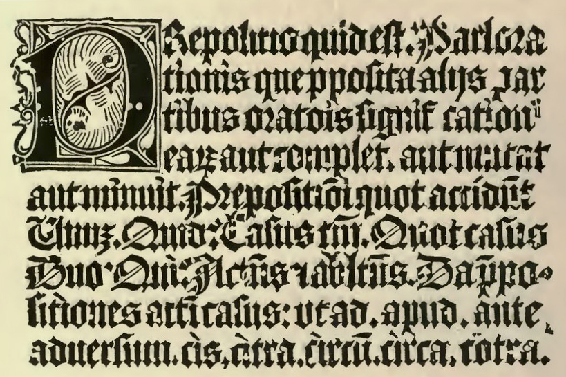 PRepositio quid est. Pars ora
tionis que p̱posita alijs par
tibus oratōis signification
earū aut complet. aut mutat
aut minuit. Prepositiōi quot accidūt
Unuz. Quid? Casus tm̄. Quot casus
Duo Qui? Actūs ⁊ ablītūs. Da p̄po-
sitiones acti casus: vt ad. apud. ante,
aduersum. cis, citra. circū. circa. cōtra.